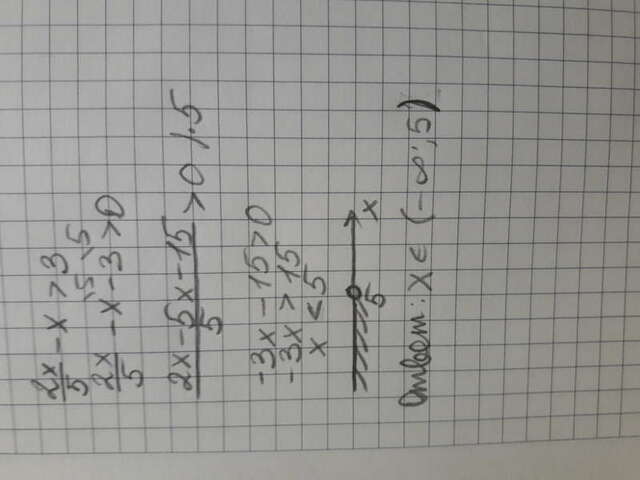 2x/5 - x > 3
2x/5 - x\5 - 3\5 > 0
2x - 5x - 15/5 > 0 /·5
-3x - 15 > 0
-3x > 15
x < 5
5 x
Ответ: x ∈ (-∞; 5)